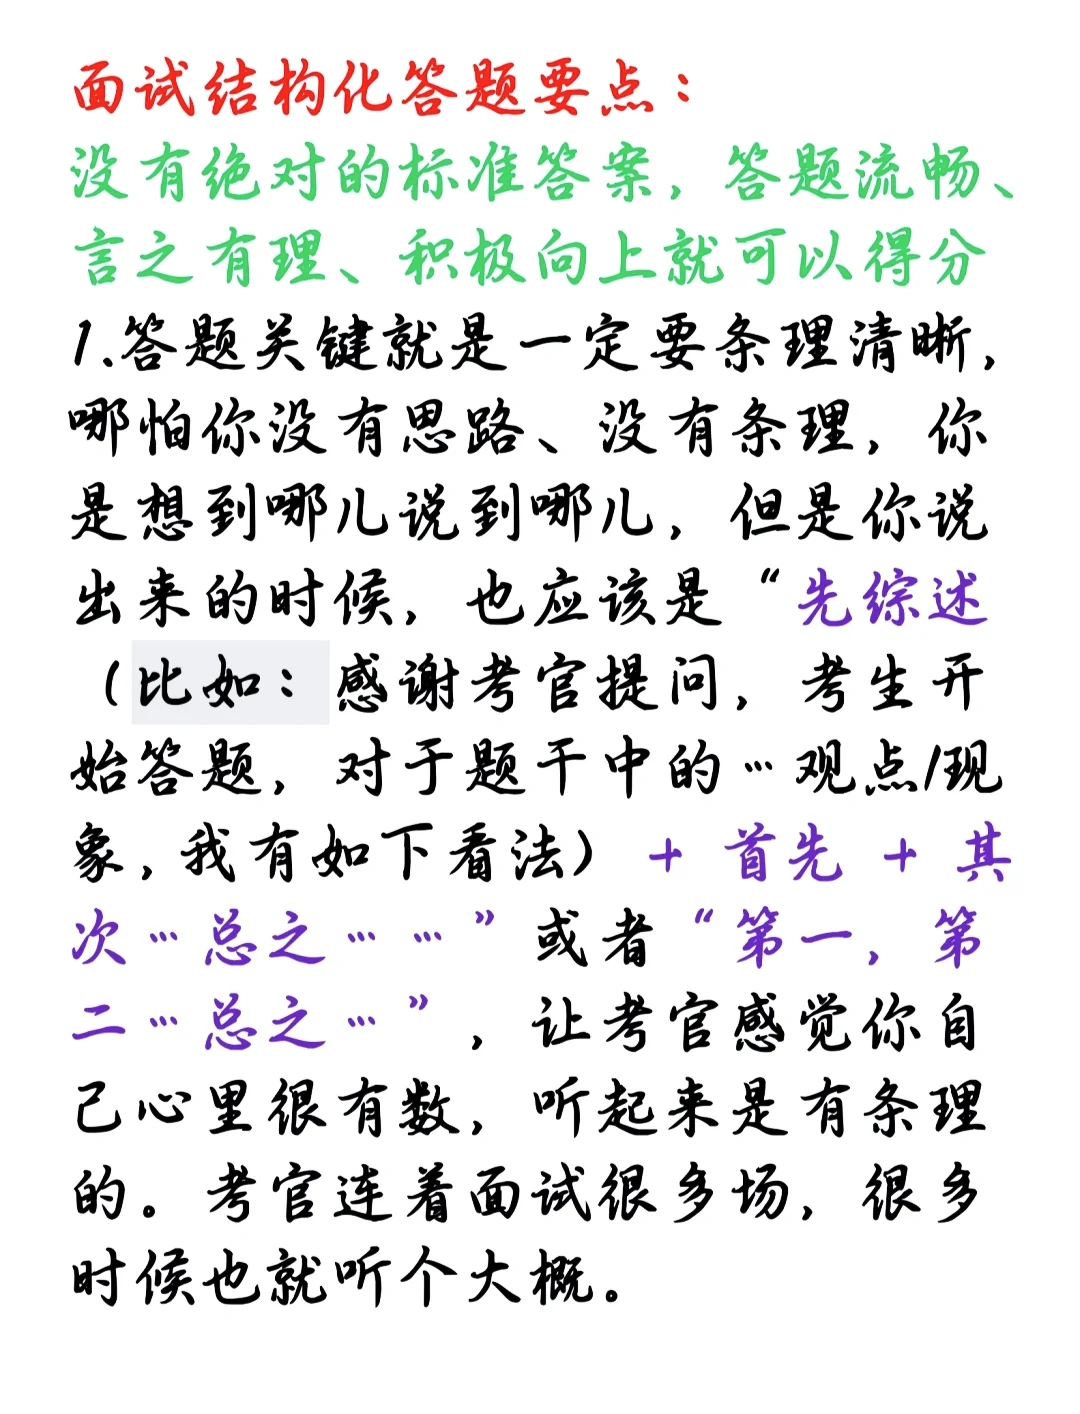 面试结构化答题要点：
没有绝对的标准答案，答题流畅、
言之有理、积极向上就可以得分
1.答题关键就是一定要条理清晰，
哪怕你没有思路、没有条理，你
是想到哪儿说到哪儿，但是你说
出来的时候，也应该是“先综述
（比如：感谢考官提问，考生开
始答题，对于题干中的…观点/现
象，我有如下看法）+ 首先 + 其
次…总之……”或者“第一，第
二…总之…”，让考官感觉你自
己心里很有数，听起来是有条理
的。考官连着面试很多场，很多
时候也就听个大概。